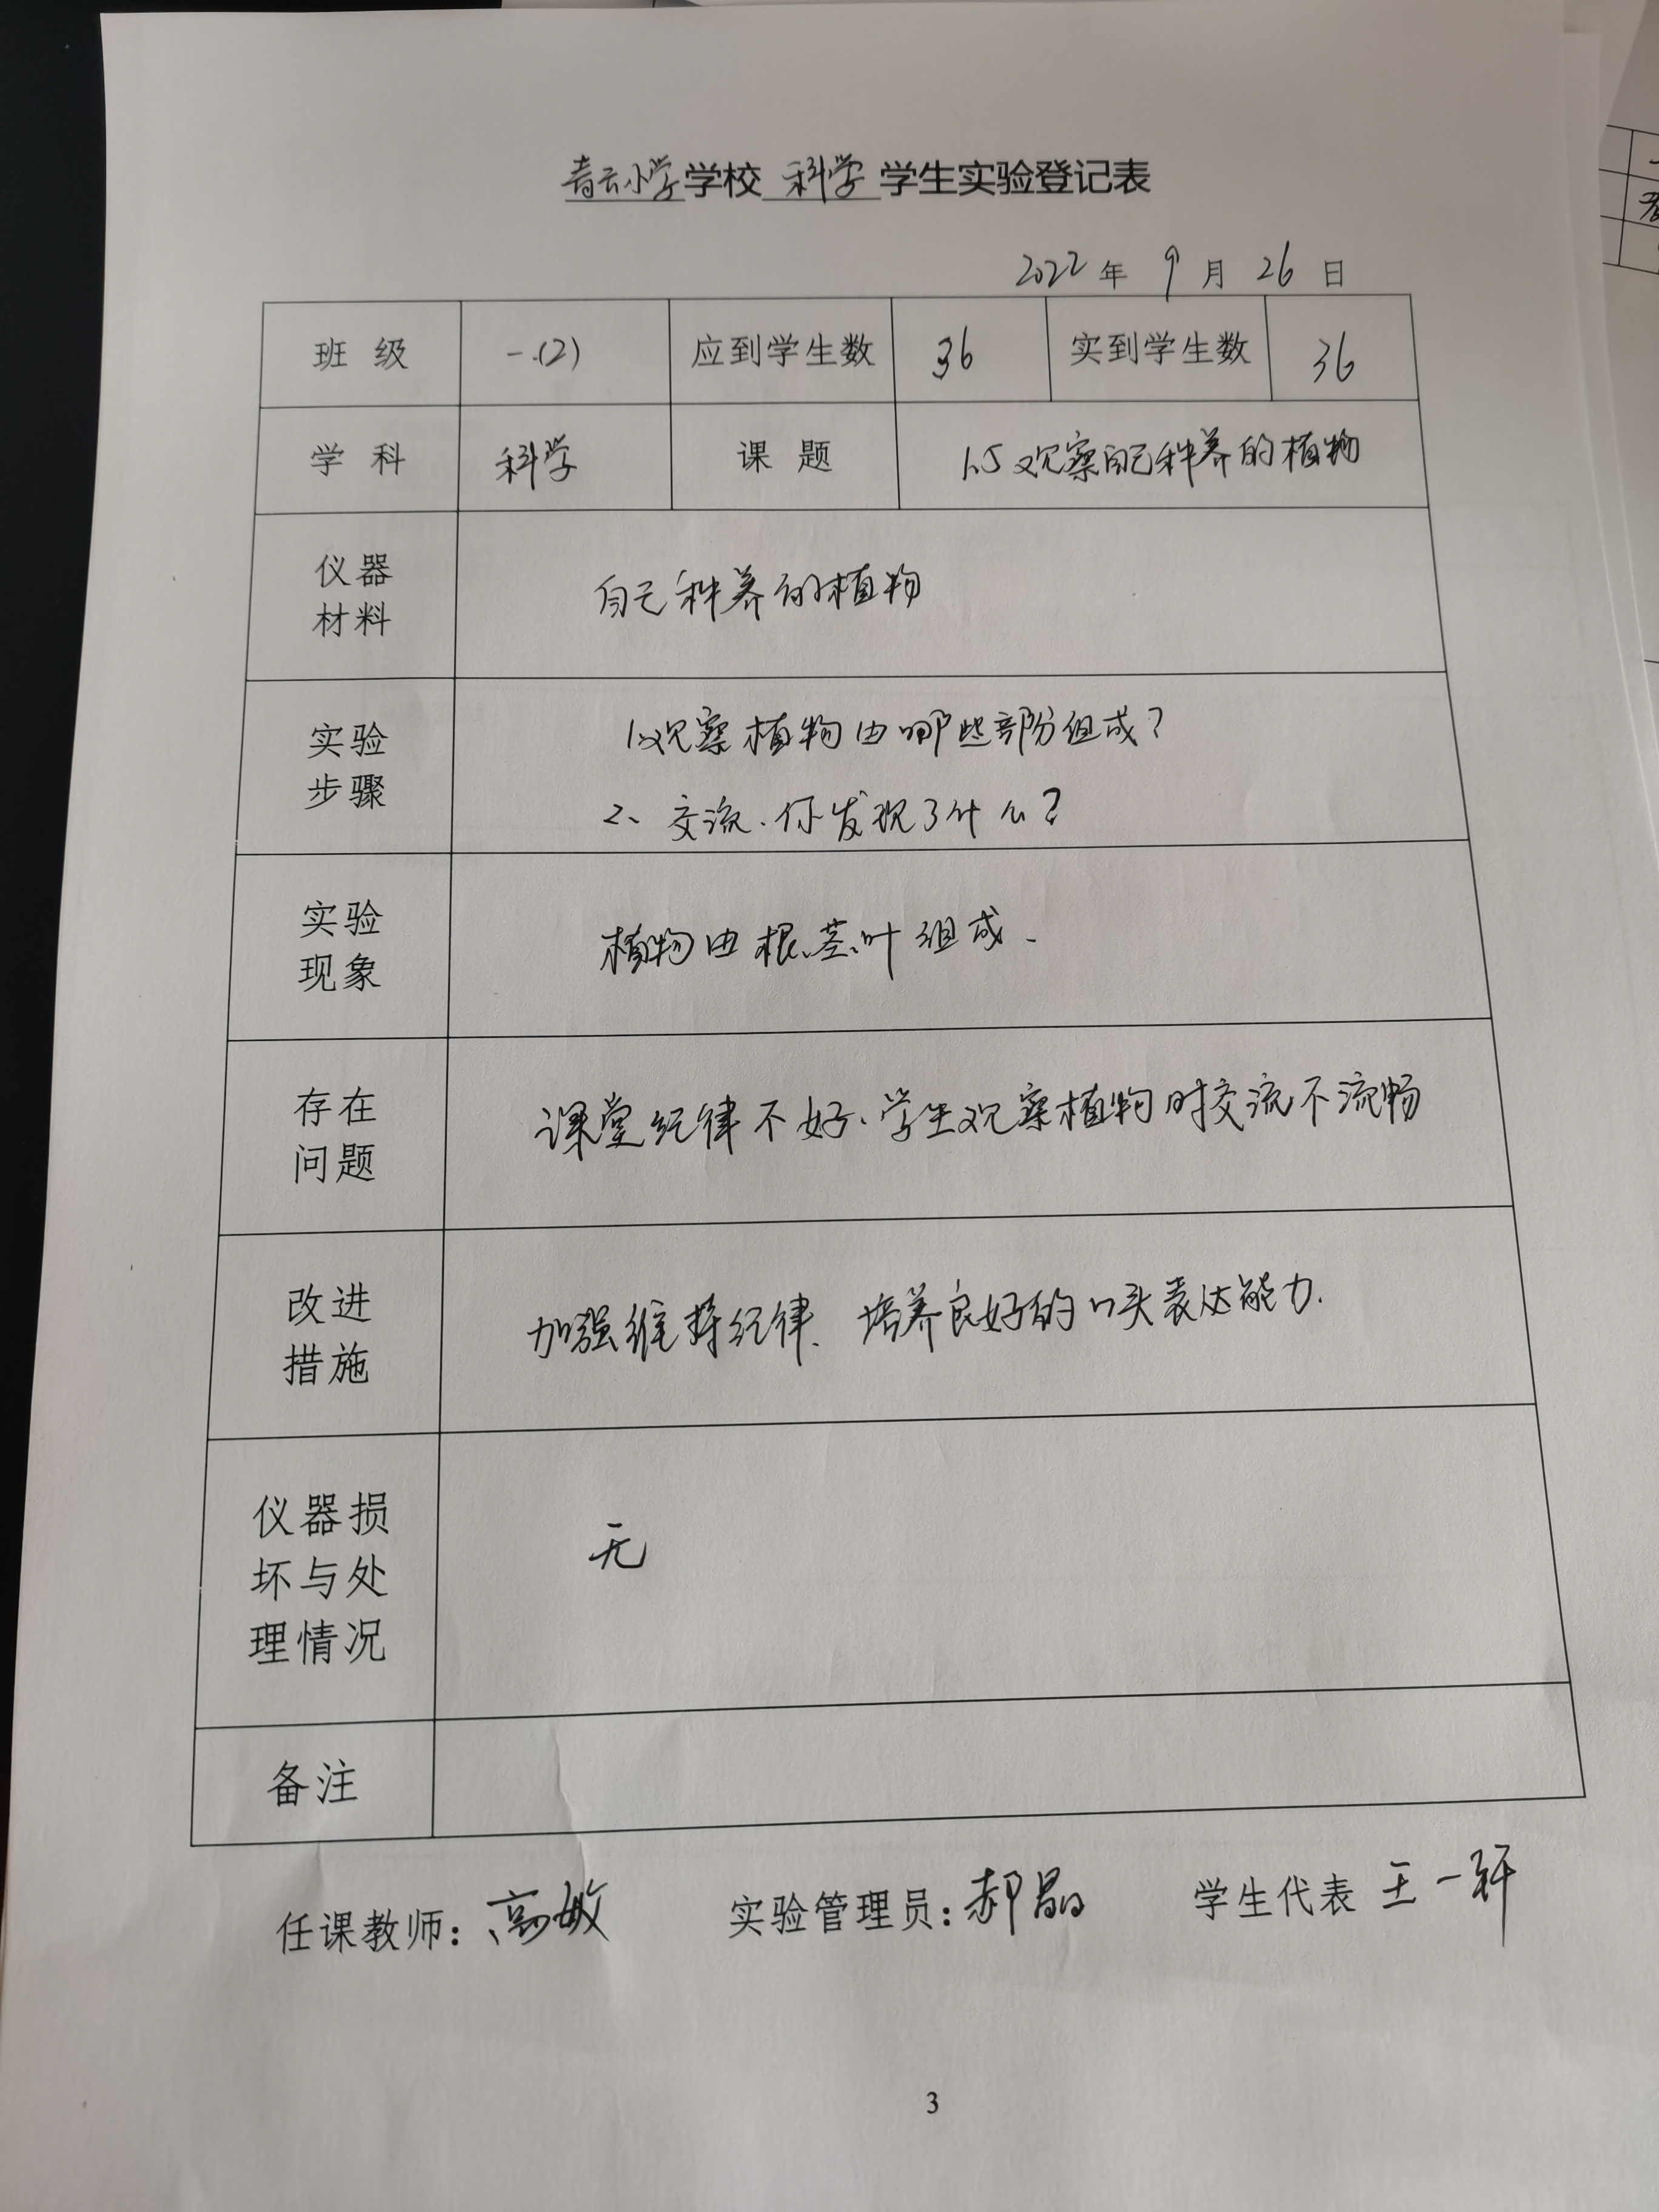 青云小学学校 科学 学生实验登记表
2022 年 9 月 26 日
班 级 一.(2) 应到学生数 36 实到学生数 36
学 科 科学 课 题 1.5 观察自己种养的植物
仪器
材料
自己种养的植物
实验
步骤
1、观察植物由哪些部份组成?
2、交流.你发现了什么?
实验
现象
植物由根、茎、叶组成.
存在
问题
课堂纪律不好、学生观察植物时交流不流畅
改进
措施
加强维持纪律、培养良好的口头表达能力.
仪器损
坏与处
理情况
无
备注
任课教师: 高敏 实验管理员: 郝晶 学生代表 王一轩
3